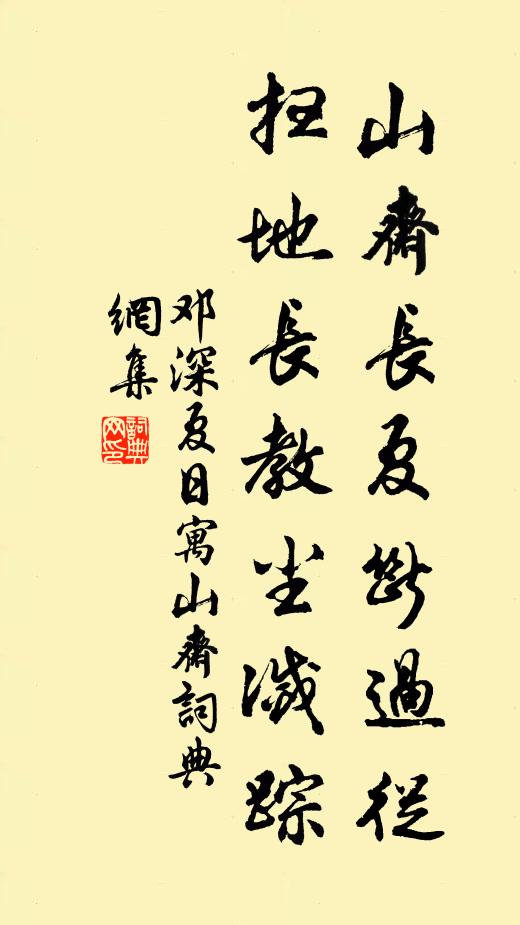 山齋長夏斷過從
扫地長教尘滅踪
邓深夏日寓山齋詞典
網集
詞典
网印